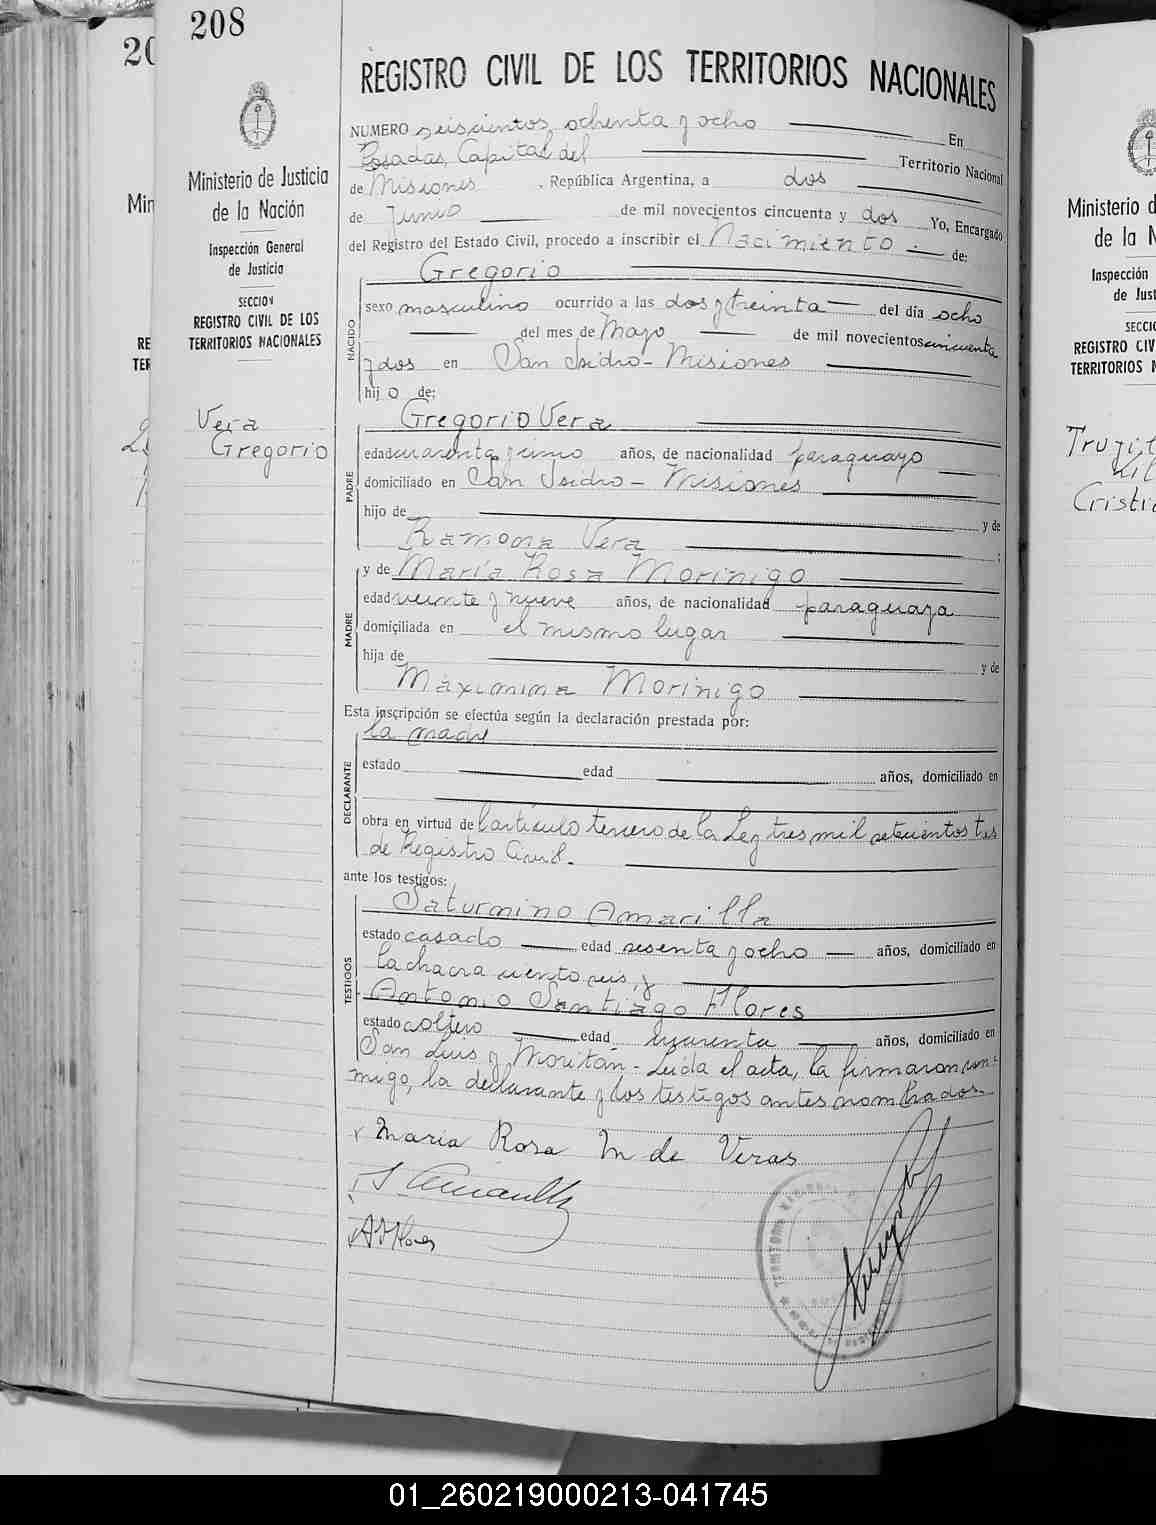 208
REGISTRO CIVIL DE LOS TERRITORIOS NACIONALES
Ministerio de Justicia
de la Nación
Inspección General
de Justicia
SECCION
REGISTRO CIVIL DE LOS
TERRITORIOS NACIONALES
Vera
Gregorio
NUMERO seiscientos ochenta y ocho En
Posadas, Capital del Territorio Nacional
de Misiones, República Argentina, a dos
de Junio de mil novecientos cincuenta y dos Yo, Encargado
del Registro del Estado Civil, procedo a inscribir el Nacimiento. de:
NACIDO
Gregorio
sexo masculino ocurrido a las dos y treinta del día ocho
del mes de Mayo de mil novecientos cincuenta
y dos en San Isidro - Misiones
hij o de:
PADRE
Gregorio Vera
edad cuarenta y años, de nacionalidad paraguayo
domiciliado en San Isidro - Misiones
hijo de y de
Ramona Vera ;
MADRE
y de María Rosa Morinigo
edad veinte y nueve años, de nacionalidad paraguaya
domiciliada en el mismo lugar
hija de y de
Maximina Morinigo
Esta inscripción se efectúa según la declaración prestada por:
DECLARANTE
la madre
estado edad años, domiciliado en
obra en virtud del artículo tercero de la Ley tres mil setecientos tres
de Registro Civil.
ante los testigos:
TESTIGOS
Saturnino Amarilla
estado casado edad sesenta y ocho años, domiciliado en
la chacra ciento seis, y
Antonio Santiago Flores
estado soltero edad cuarenta años, domiciliado en
San Luis y Moritán - Leída el acta, la firmaron con-
migo, la declarante y los testigos antes nombrados.
Maria Rosa M de Veras
S Amarilla
Flores
TERRITORIO NACIONAL
Ministerio d
de la N
Inspecció
de Just
SECCIO
REGISTRO CIV
TERRITORIOS N
Cristi
01_260219000213-041745